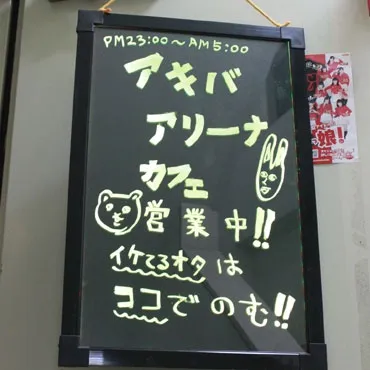 PM23:00〜AM5:00
アキバ
アリーナ
カフェ
営業中!!
イケてるオタは
ココでのむ!!
娘!!